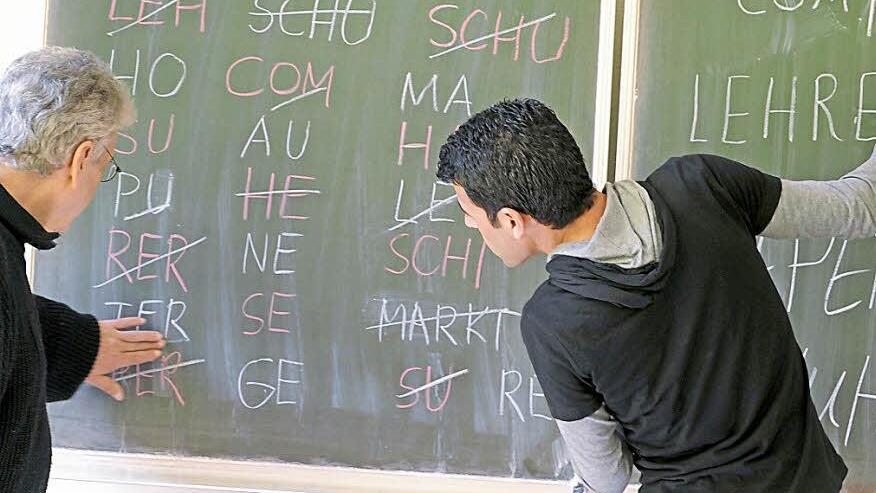 LEH SCHU SCHU
HO COM MA
SU AU
PU HE LE
RER NE SCHI
TER SE MARKT
BER GE SU RE
LEHRE